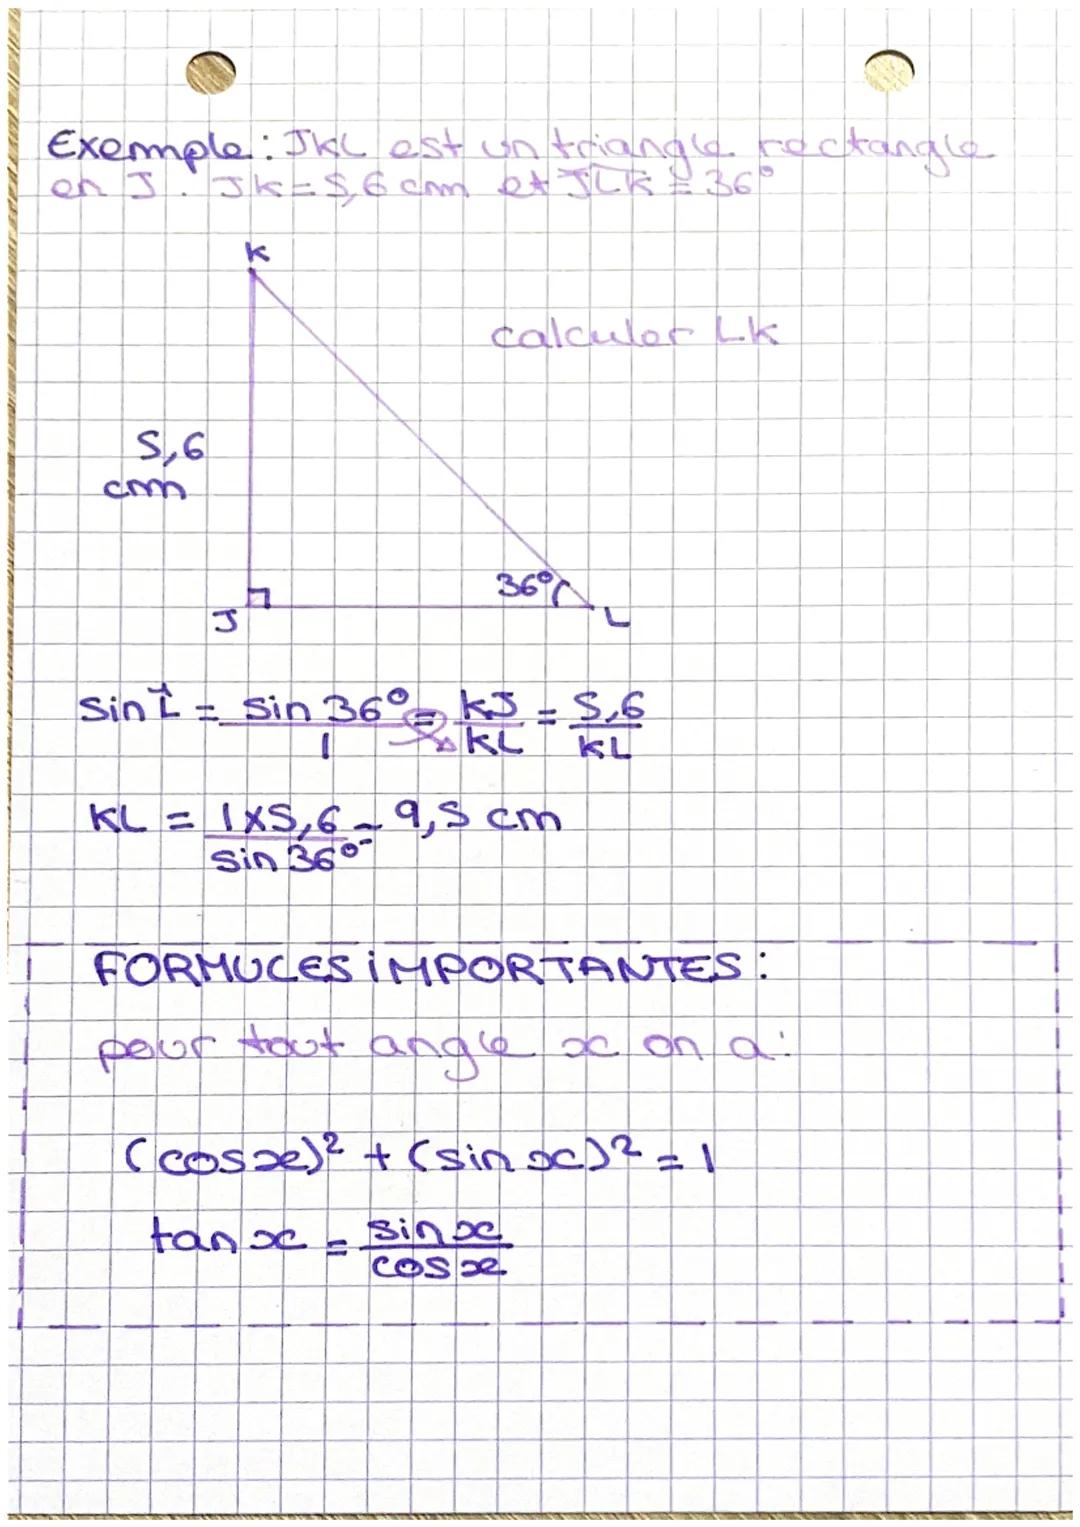 Exemple : JKL est un triangle rectangle
en J. JK = 5,6 cm et JLK = 36°
K
calculer LK
5,6
cm
36°
J
L
sin L = sin 36° / 1 = KJ / KL = 5,6 / KL
KL = 1x5,6 / sin 36° ≈ 9,5 cm
FORMULES iMPORTANTES :
pour tout angle x on a :
(cos x)² + (sin x)² = 1
tan x = sin x / cos x